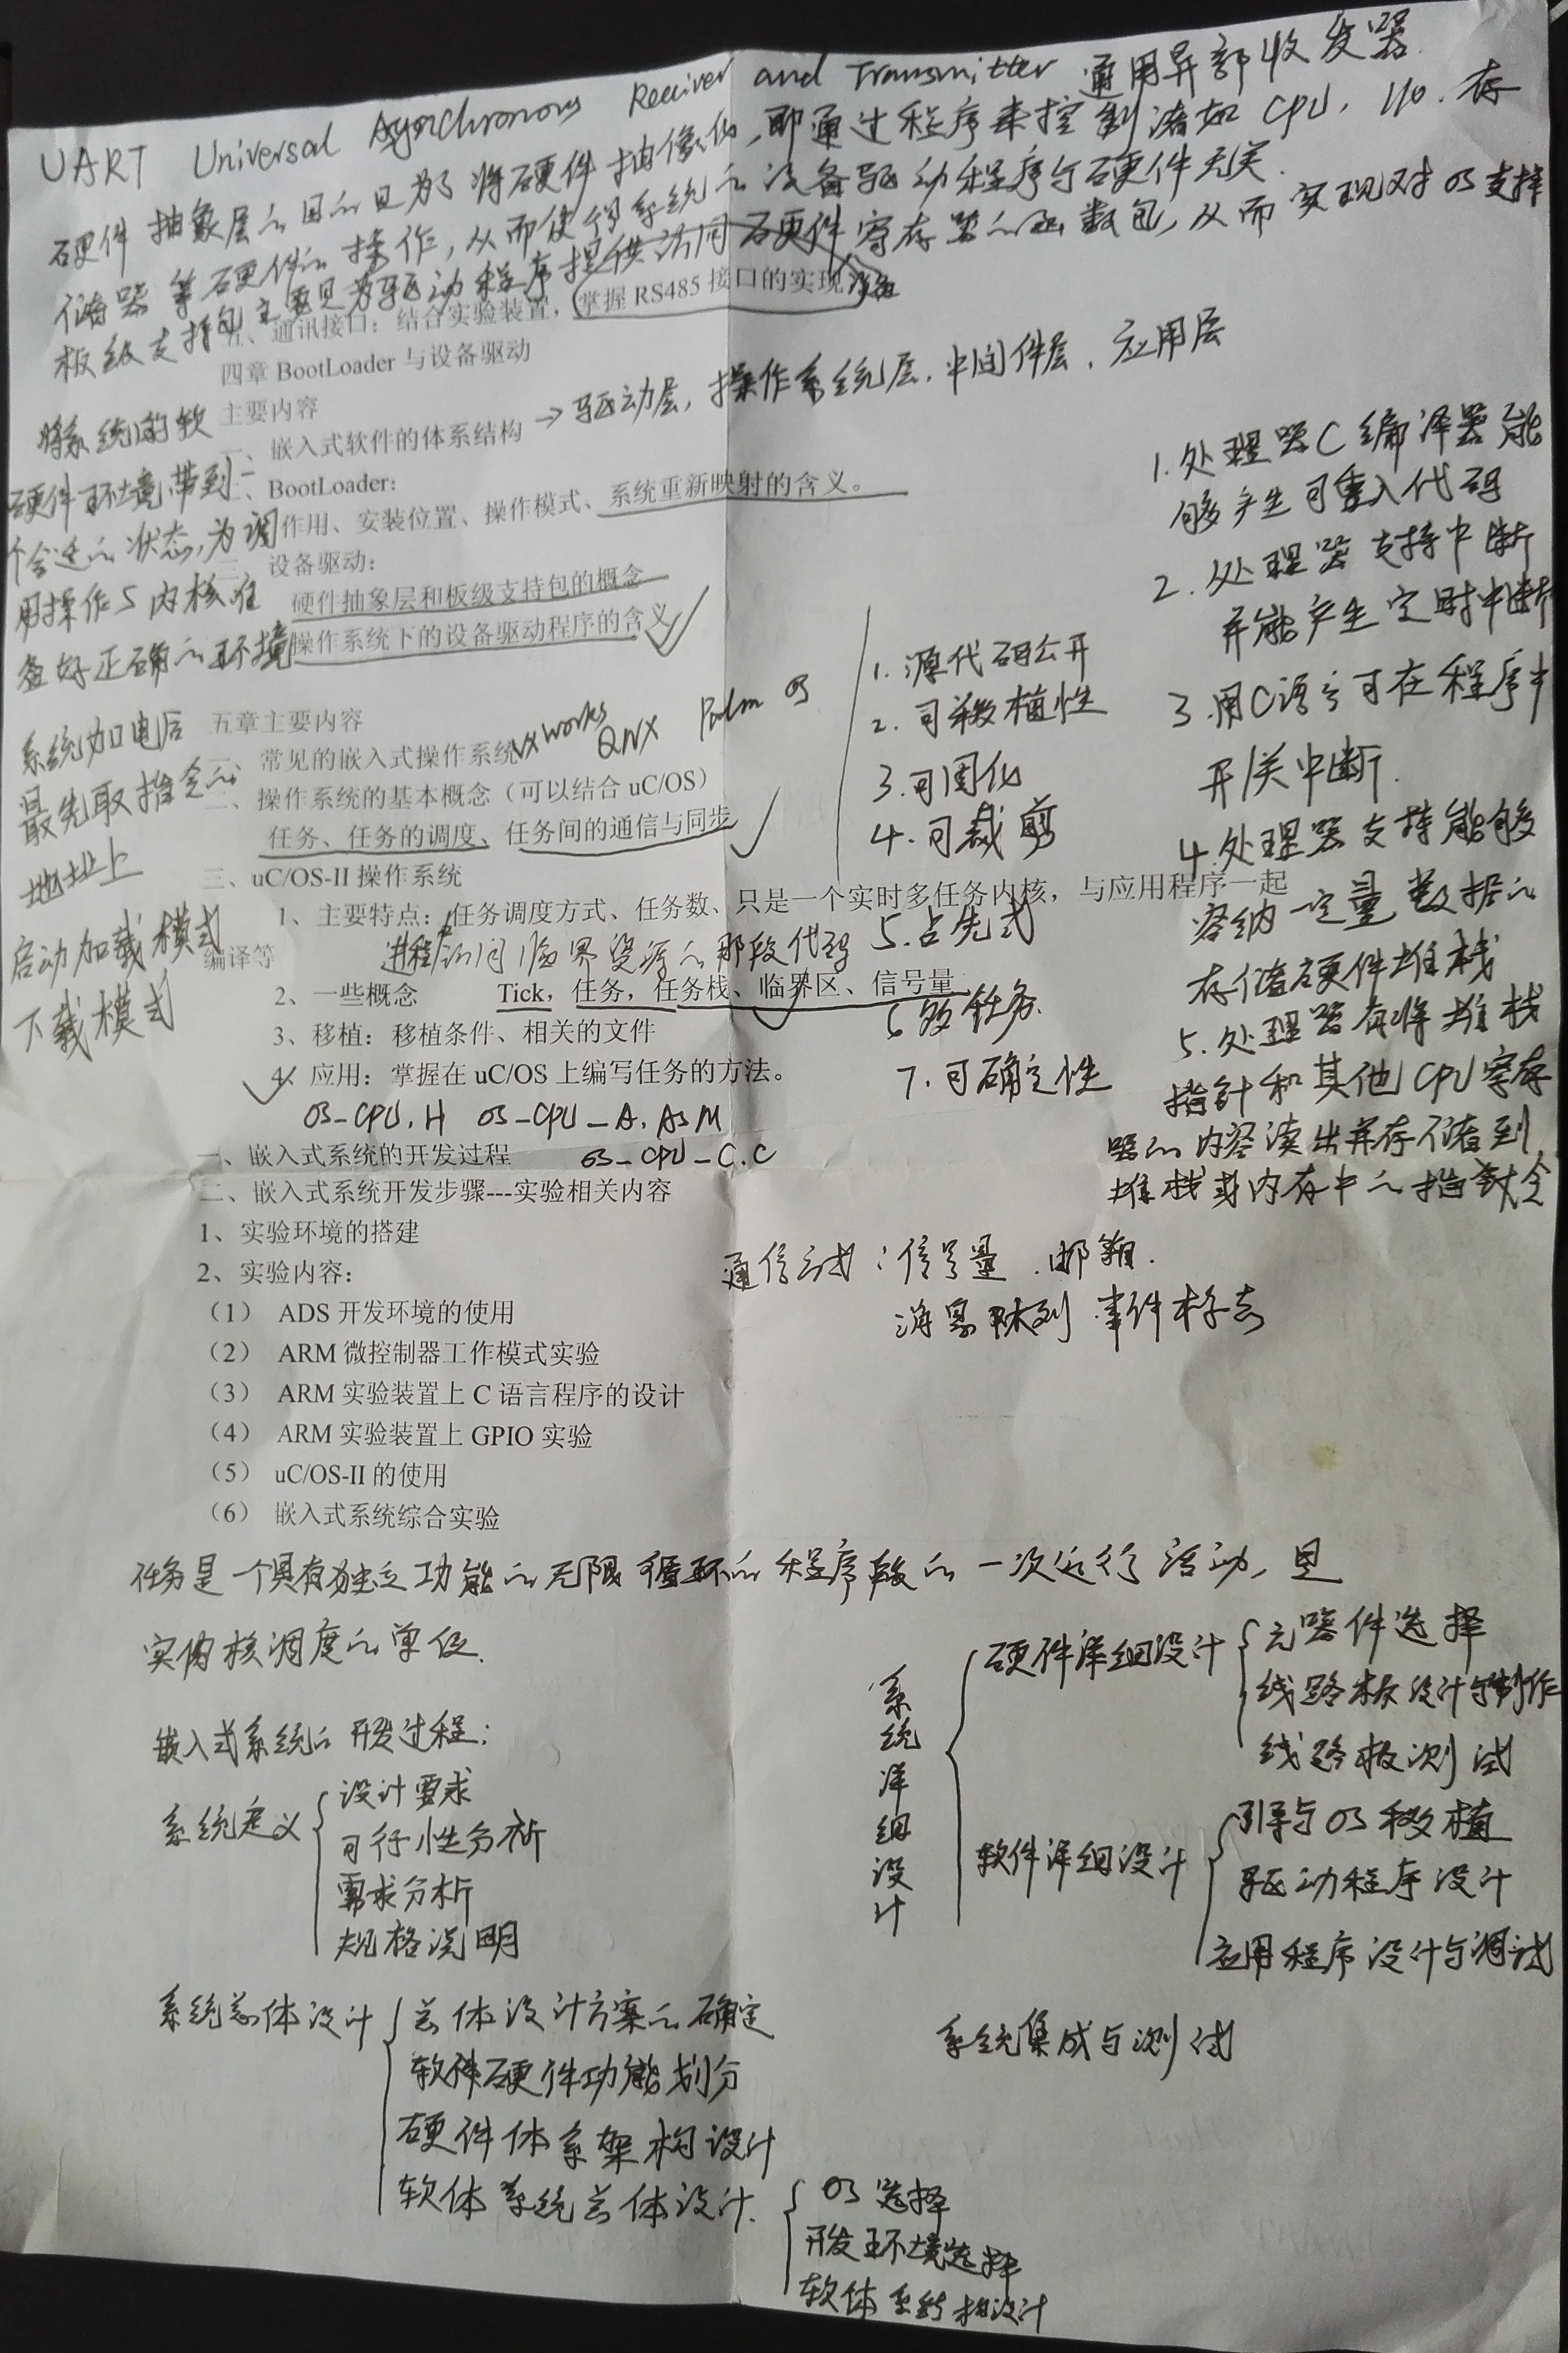 UART Universal Asynchronous Receiver and Transmitter 通用异部收发器
硬件抽象层的目的是为了将硬件抽像化,即通过程序来控制诸如CPU, I/O, 存
储器等硬件的操作,从而使得系统的设备驱动程序与硬件无关.
板级支持包主要是为驱动程序提供访问硬件寄存器的函数包,从而实现对OS支持
五、通讯接口:结合实验装置,掌握 RS485 接口的实现
四章 BootLoader 与设备驱动
主要内容
一、嵌入式软件的体系结构 → 驱动层, 操作系统层, 中间件层, 应用层
二、BootLoader:
作用、安装位置、操作模式、系统重新映射的含义。
三、设备驱动:
硬件抽象层和板级支持包的概念
操作系统下的设备驱动程序的含义
将系统的软
硬件环境带到一
个合适的状态,为调
用操作S内核准
备好正确的环境
系统加电后
最先取指令的
地址上
启动加载模式
下载模式
五章主要内容
一、常见的嵌入式操作系统 VXworks QNX Palm OS
二、操作系统的基本概念(可以结合 uC/OS)
任务、任务的调度、任务间的通信与同步
三、uC/OS-II 操作系统
1、主要特点:任务调度方式、任务数、只是一个实时多任务内核,与应用程序一起
编译等
进程访问临界资源的那段代码
2、一些概念 Tick,任务,任务栈、临界区、信号量
3、移植:移植条件、相关的文件
4、应用:掌握在 uC/OS 上编写任务的方法。
OS_CPU.H OS_CPU_A.ASM
OS_CPU_C.C
1. 源代码公开
2. 可移植性
3. 可固化
4. 可裁剪
5. 占先式
6 多任务.
7. 可确定性
1. 处理器C编译器能
够产生可重入代码
2. 处理器支持中断
并能产生定时中断
3. 用C语言可在程序中
开/关中断.
4. 处理器支持能够
容纳一定量数据的
存储硬件堆栈
5. 处理器有将堆栈
指针和其他CPU寄存
器的内容读出并存储到
堆栈或内存中的指令
一、嵌入式系统的开发过程
二、嵌入式系统开发步骤---实验相关内容
1、实验环境的搭建
2、实验内容:
(1) ADS 开发环境的使用
(2) ARM 微控制器工作模式实验
(3) ARM 实验装置上 C 语言程序的设计
(4) ARM 实验装置上 GPIO 实验
(5) uC/OS-II 的使用
(6) 嵌入式系统综合实验
通信方式:信号量.邮箱.
消息队列 事件标志
任务是一个具有独立功能的无限循环的程序段的一次运行活动,是
实内核调度的单位.
嵌入式系统的开发过程:
系统定义
设计要求
可行性分析
需求分析
规格说明
系统总体设计
总体设计方案的确定
软件硬件功能划分
硬件体系架构设计
软体系统总体设计.
OS选择
开发环境选择
软体系结构设计
系统详细设计
硬件详细设计
元器件选择
线路板设计与制作
线路板测试
软件详细设计
引导与OS移植
驱动程序设计
应用程序设计与调试
系统集成与测试